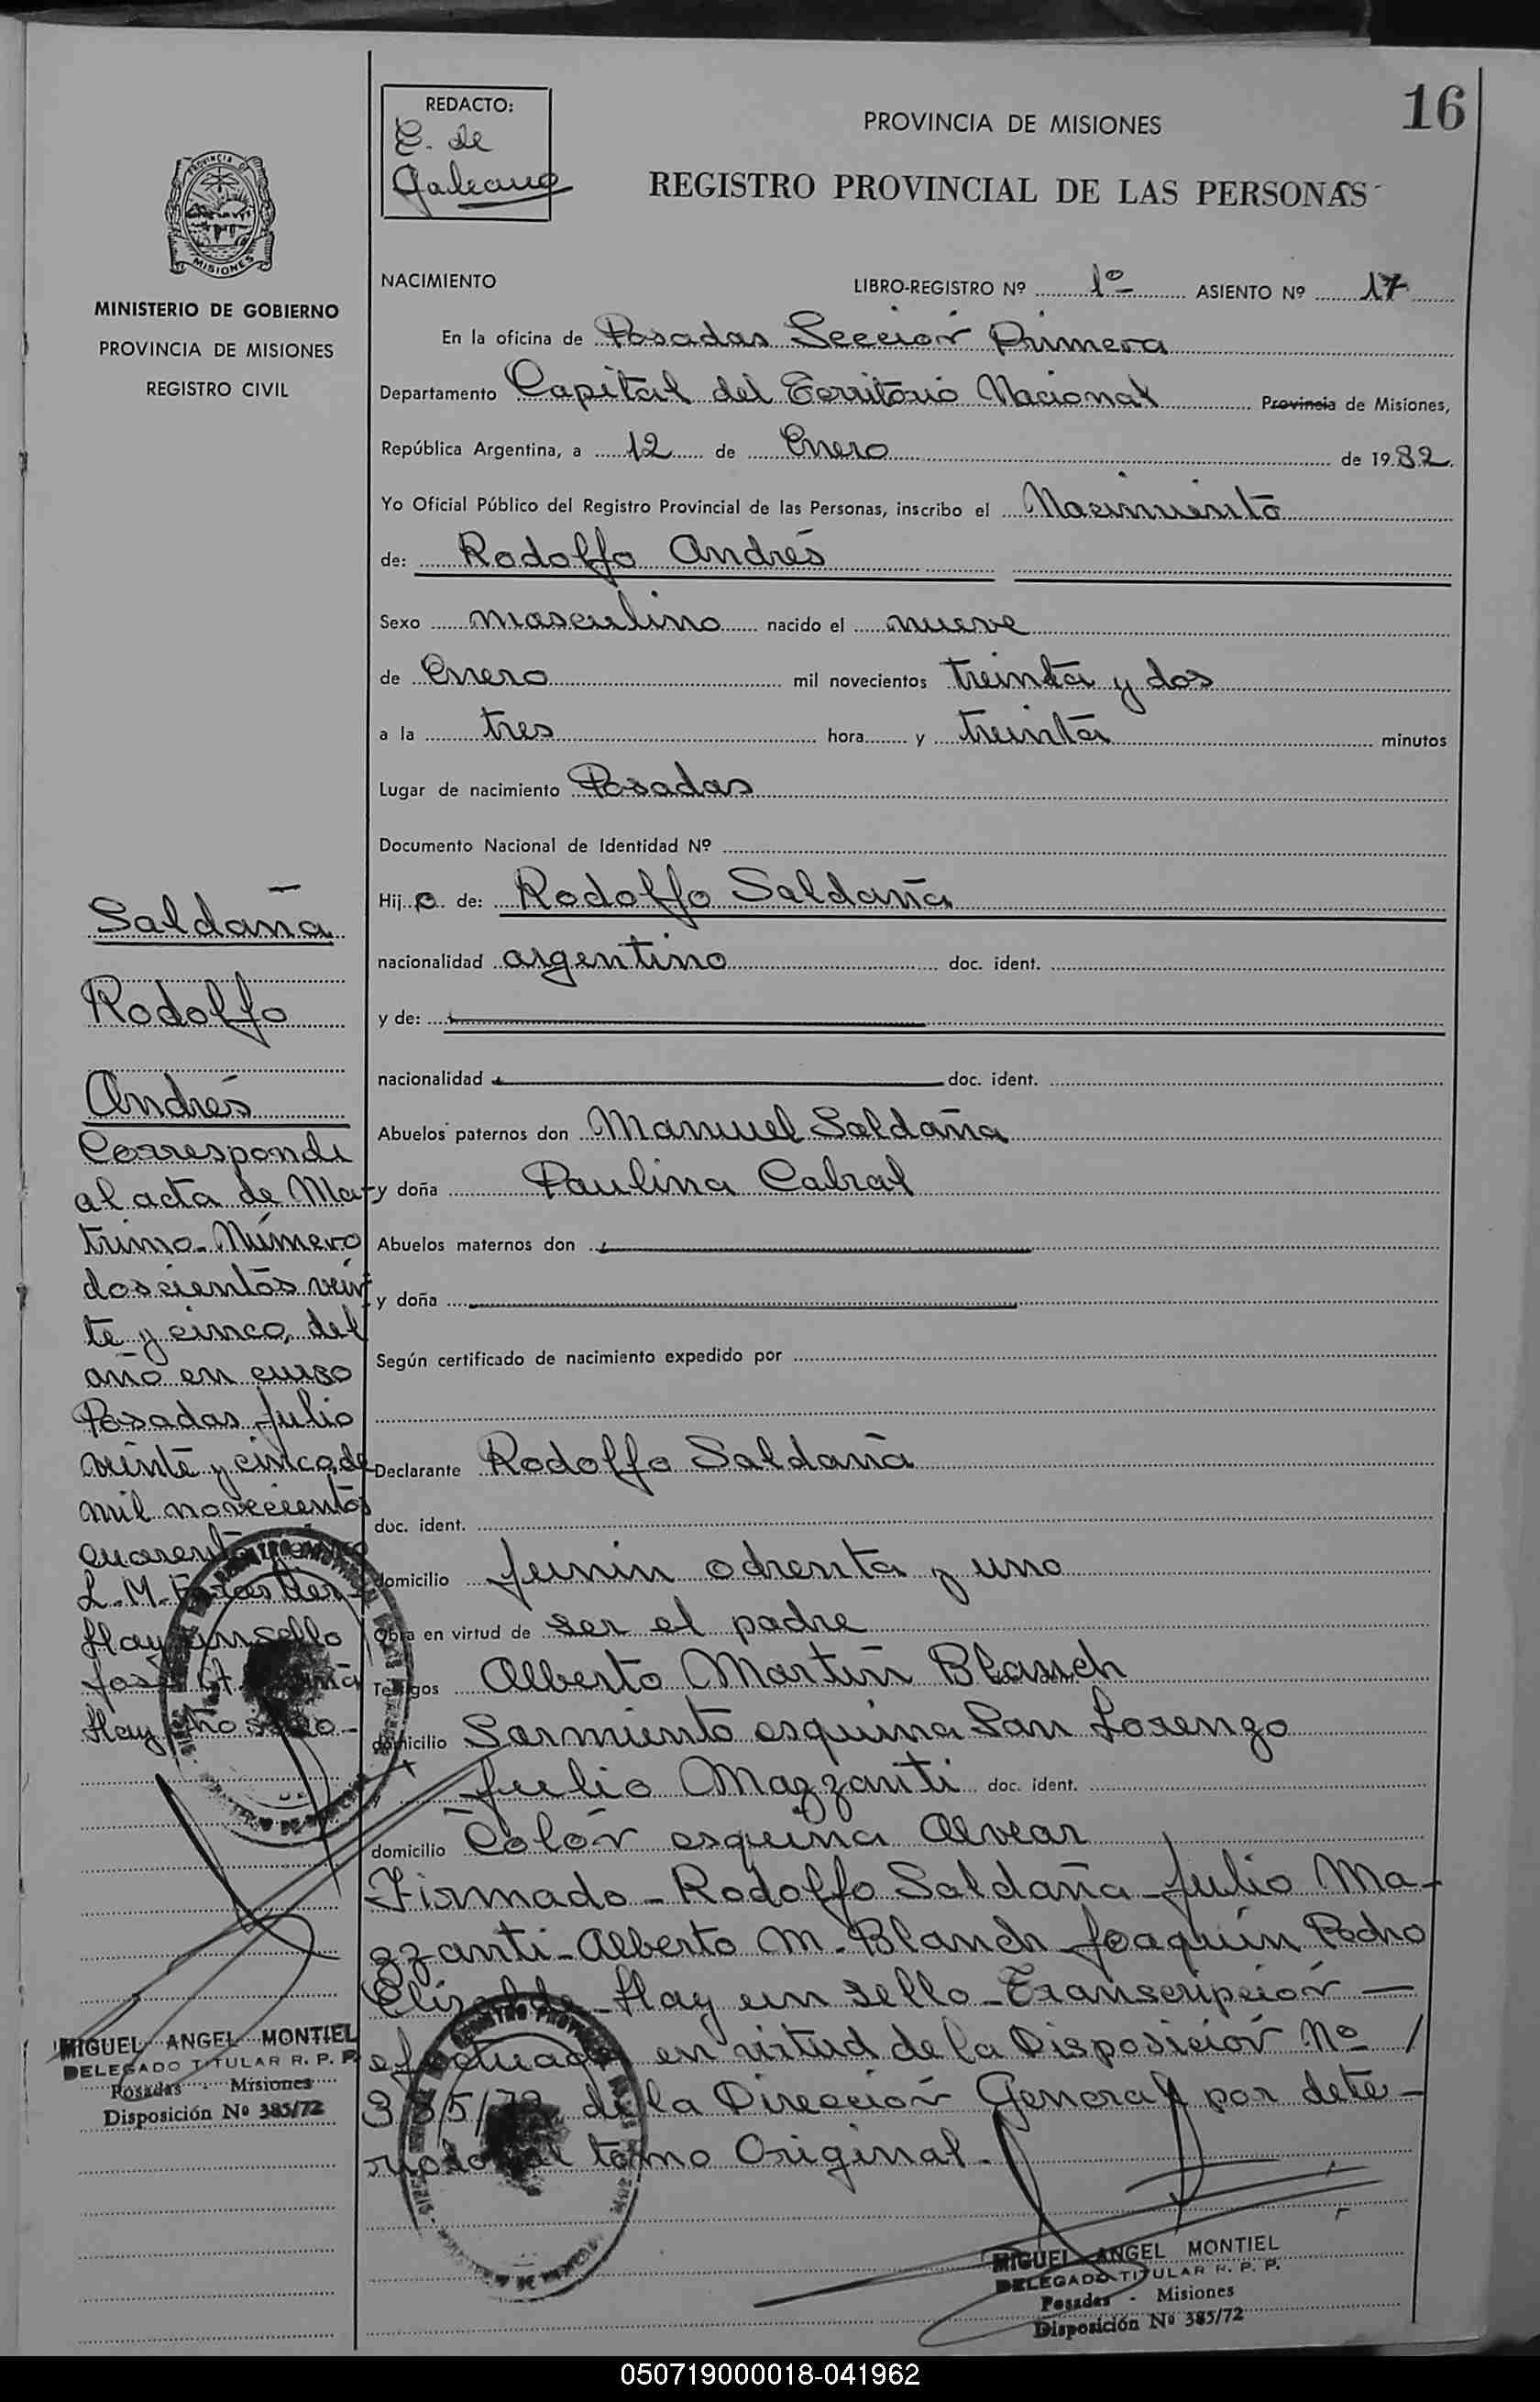 16
REDACTO:
E. de
Galeano
PROVINCIA DE MISIONES
REGISTRO PROVINCIAL DE LAS PERSONAS
PROVINCIA DE
MISIONES
MINISTERIO DE GOBIERNO
PROVINCIA DE MISIONES
REGISTRO CIVIL
NACIMIENTO LIBRO-REGISTRO Nº 1º ASIENTO Nº 17
En la oficina de Posadas Sección Primera
Departamento Capital del Territorio Nacional Provincia de Misiones,
República Argentina, a 12 de Enero de 1932.
Yo Oficial Público del Registro Provincial de las Personas, inscribo el Nacimiento
de: Rodolfo Andrés
Sexo masculino nacido el nueve
de Enero mil novecientos treinta y dos
a la tres hora y treinta minutos
Lugar de nacimiento Posadas
Documento Nacional de Identidad Nº
Hij o de: Rodolfo Saldaña
nacionalidad argentino doc. ident.
y de:
nacionalidad doc. ident.
Abuelos paternos don Manuel Saldaña
y doña Paulina Cabral
Abuelos maternos don
y doña
Según certificado de nacimiento expedido por
Declarante Rodolfo Saldaña
doc. ident.
domicilio Junin ochenta y uno
Obra en virtud de ser el padre
Testigos Alberto Martín Blanch
domicilio Sarmiento esquina San Lorenzo
Julio Mazzanti doc. ident.
domicilio Colón esquina Alvear
Firmado - Rodolfo Saldaña - Julio Ma-
zzanti - Alberto M. Blanch Joaquín Pedro
Elizalde - Hay un sello - Transcripción —
efectuada en virtud de la Disposición Nº /
385/72 de la Dirección General por dete-
rioro al tomo Original.
MIGUEL ANGEL MONTIEL
DELEGADO TITULAR R. P. P.
Posadas - Misiones
Disposición Nº 385/72
Saldaña
Rodolfo
Andrés
Corresponde
al acta de Ma-
trimo- Número
doscientos vein-
te y cinco, del
año en curso
Posadas Julio
veinte y cinco de
mil novecientos
cuarenta
L. M.
Hay un sello
José
Hay otro sello -
MIGUEL ANGEL MONTIEL
DELEGADO TITULAR R. P. P.
Posadas - Misiones
Disposición Nº 385/72
050719000018-041962